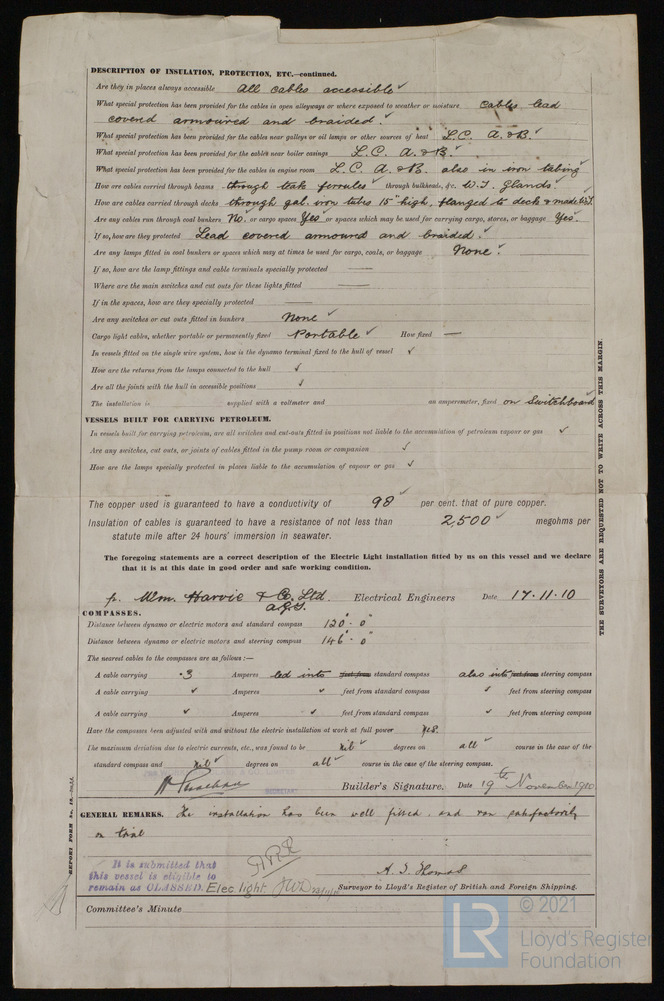 DESCRIPTION OF INSULATION, PROTECTION, ETC.—continued.
Are they in places always accessible All cables accessible ✓
What special protection has been provided for the cables in open alleyways or where exposed to weather or moisture Cables lead
covered armoured and braided. ✓
What special protection has been provided for the cables near galleys or oil lamps or other sources of heat L.C. A.&B. ✓
What special protection has been provided for the cables near boiler casings L.C. A.&B. ✓
What special protection has been provided for the cables in engine room L.C. A.&B. also in iron tubing ✓
How are cables carried through beams through teak ferrules ✓ through bulkheads, &c. W.T. Glands. ✓
How are cables carried through decks through gal. iron tubes 15" high, flanged to deck & made W.T.
Are any cables run through coal bunkers No. ✓ or cargo spaces Yes ✓ or spaces which may be used for carrying cargo, stores, or baggage Yes. ✓
If so, how are they protected Lead covered armoured and braided. ✓
Are any lamps fitted in coal bunkers or spaces which may at times be used for cargo, coals, or baggage None. ✓
If so, how are the lamp fittings and cable terminals specially protected —
Where are the main switches and cut outs for these lights fitted —
If in the spaces, how are they specially protected —
Are any switches or cut outs fitted in bunkers None ✓
Cargo light cables, whether portable or permanently fixed Portable ✓ How fixed —
In vessels fitted on the single wire system, how is the dynamo terminal fixed to the hull of vessel ✓
How are the returns from the lamps connected to the hull ✓
Are all the joints with the hull in accessible positions ✓
The installation is supplied with a voltmeter and an amperemeter, fixed on Switchboard ✓
VESSELS BUILT FOR CARRYING PETROLEUM.
In vessels built for carrying petroleum, are all switches and cut-outs fitted in positions not liable to the accumulation of petroleum vapour or gas ✓
Are any switches, cut outs, or joints of cables fitted in the pump room or companion ✓
How are the lamps specially protected in places liable to the accumulation of vapour or gas ✓
The copper used is guaranteed to have a conductivity of 98 ✓ per cent. that of pure copper.
Insulation of cables is guaranteed to have a resistance of not less than 2,500 ✓ megohms per
statute mile after 24 hours' immersion in seawater.
The foregoing statements are a correct description of the Electric Light installation fitted by us on this vessel and we declare
that it is at this date in good order and safe working condition.
p. Wm. Harvie & Co. Ltd. Electrical Engineers Date 17.11.10
COMPASSES.
Distance between dynamo or electric motors and standard compass 120' 0"
Distance between dynamo or electric motors and steering compass 146' 0"
The nearest cables to the compasses are as follows:—
A cable carrying .3 Amperes led into feet from standard compass also into feet from steering compass
A cable carrying ✓ Amperes ✓ feet from standard compass ✓ feet from steering compass
A cable carrying ✓ Amperes ✓ feet from standard compass ✓ feet from steering compass
Have the compasses been adjusted with and without the electric installation at work at full power Yes.
The maximum deviation due to electric currents, etc., was found to be nil ✓ degrees on all ✓ course in the case of the
standard compass and nil ✓ degrees on all ✓ course in the case of the steering compass.
Builder's Signature. Date 19th November 1910
GENERAL REMARKS. The installation has been well fitted and ran satisfactorily
on trial
It is submitted that
this vessel is eligible to
remain as CLASSED. Elec light
A. T. Thomas
Surveyor to Lloyd's Register of British and Foreign Shipping.
Committee's Minute
THE SURVEYORS ARE REQUESTED NOT TO WRITE ACROSS THIS MARGIN.
LR
© 2021
Lloyd's Register
Foundation